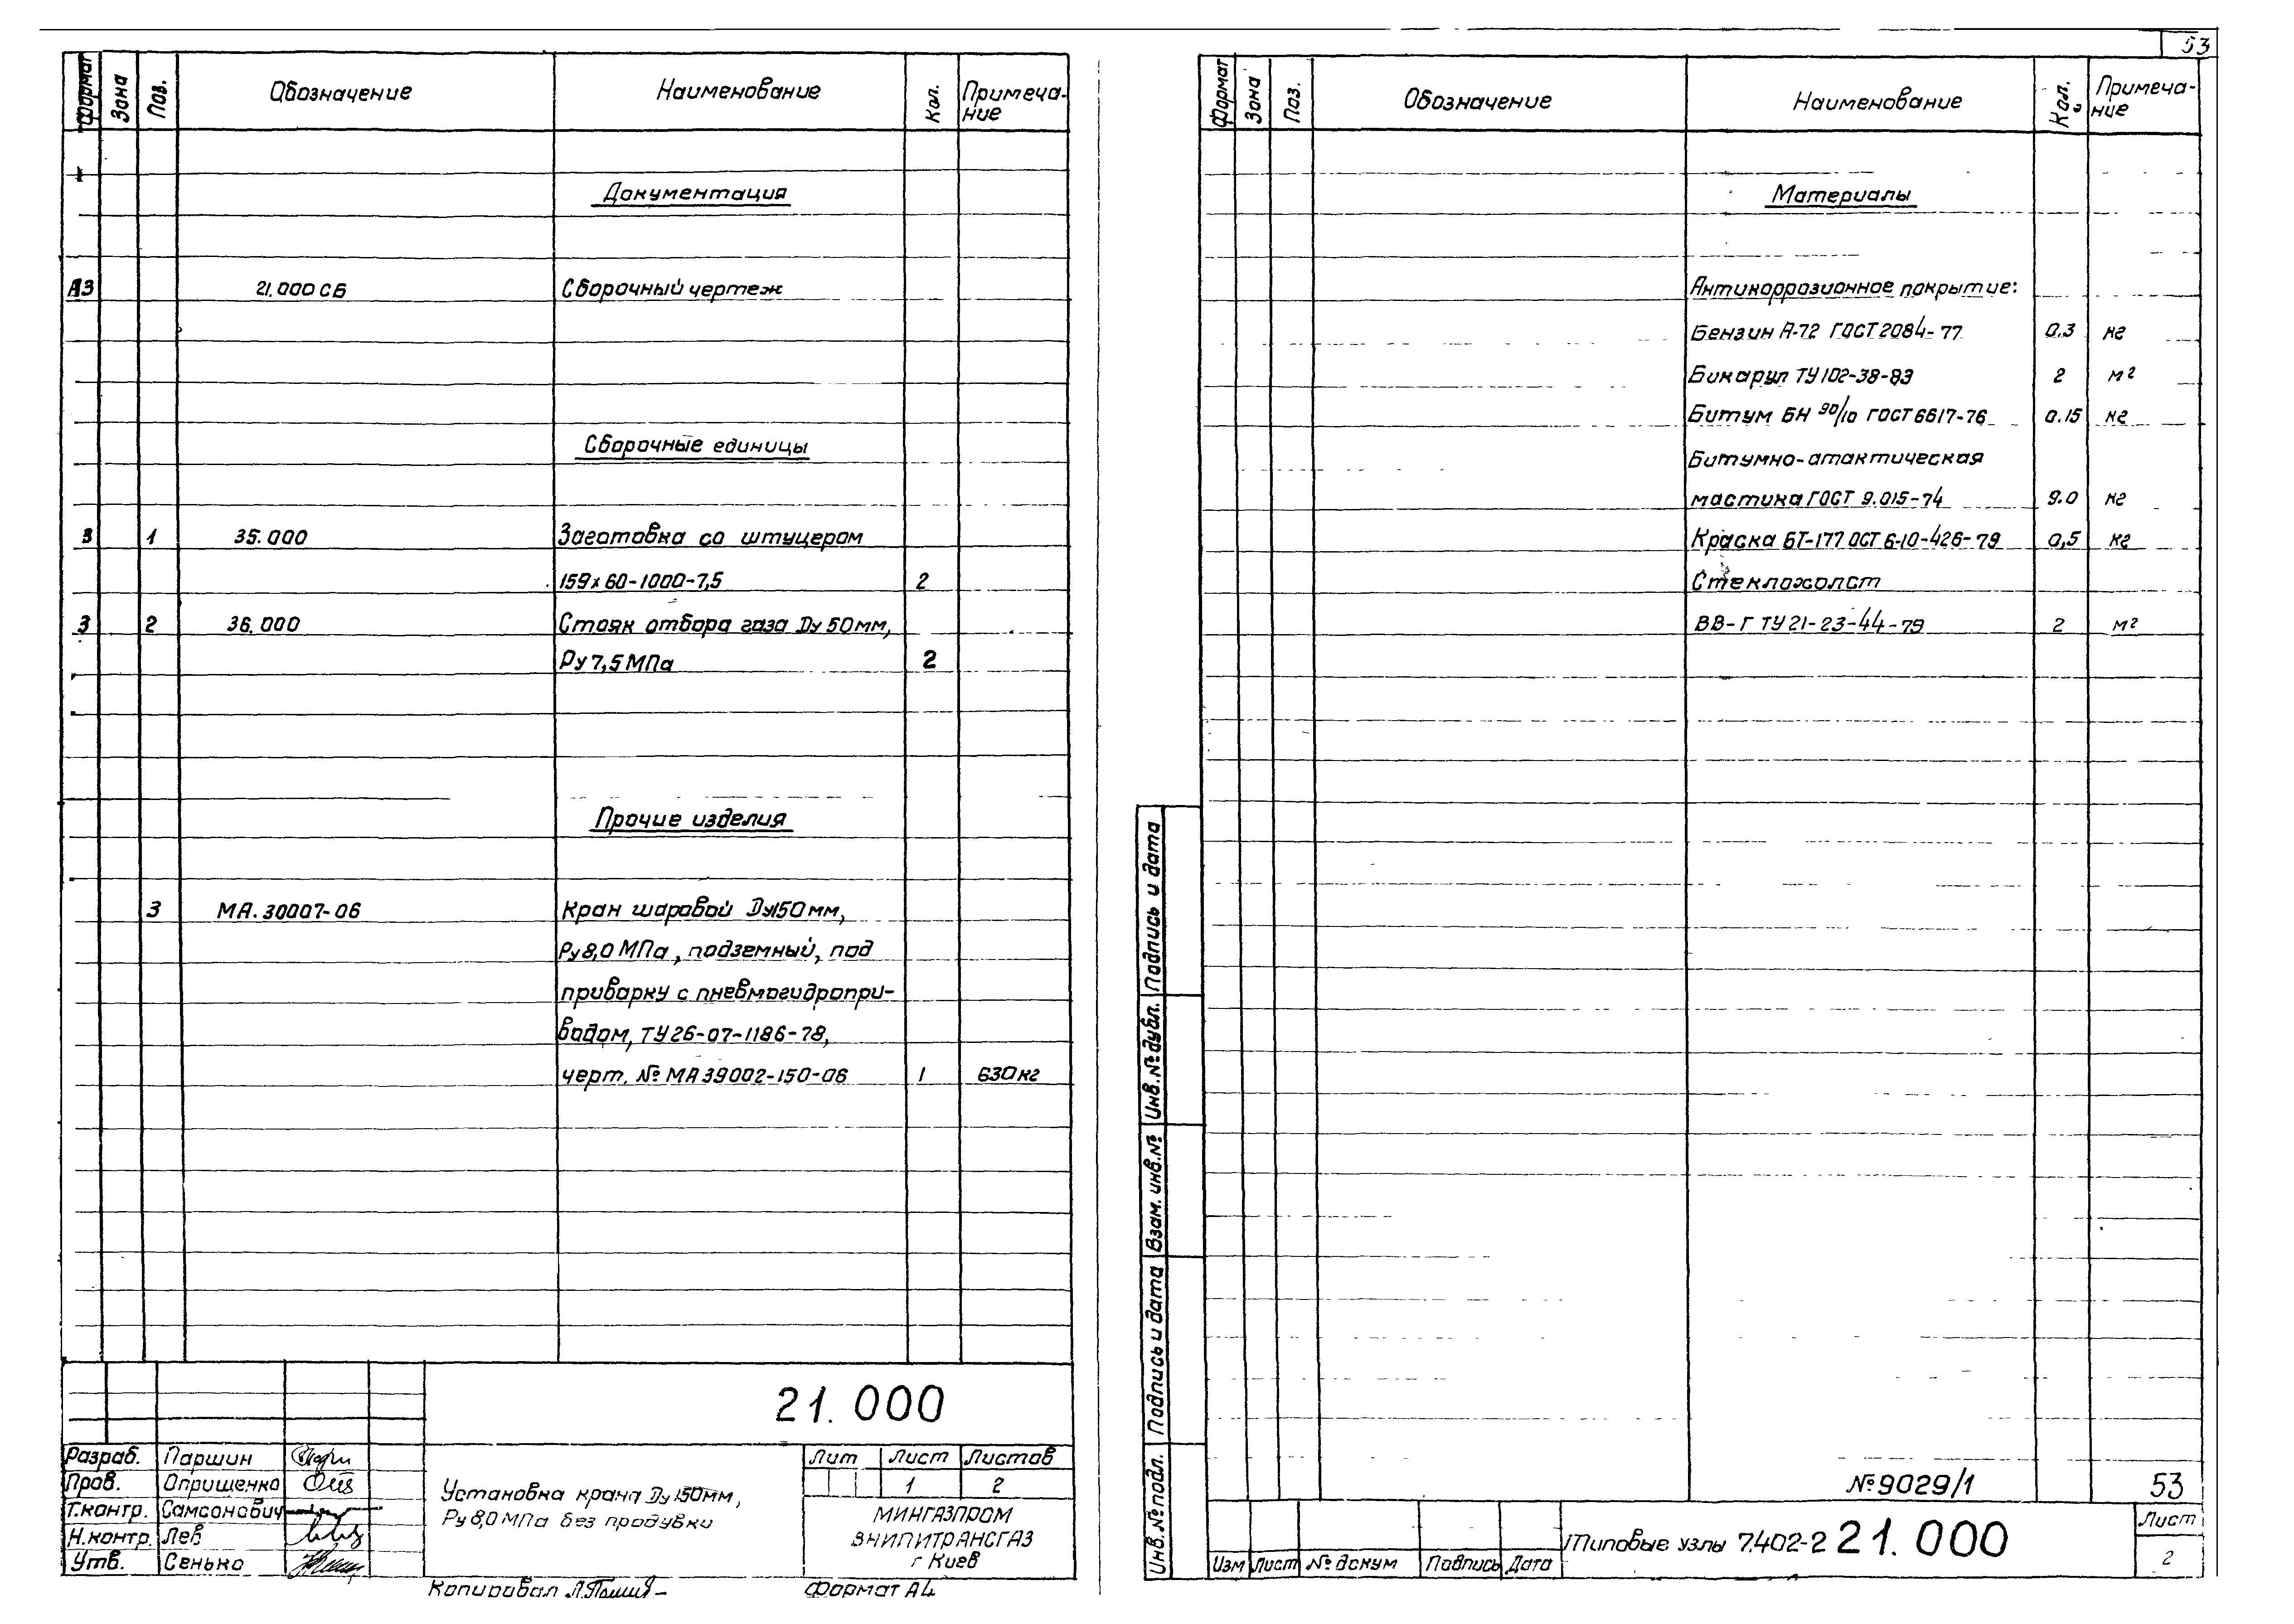 Формат Зона Поз. Обозначение Наименование Кол. Примеча-
ние
Документация
А3 21.000 СБ Сборочный чертеж
Сборочные единицы
3 1 35.000 Заготовка со штуцером
159х60-1000-7,5 2
3 2 36.000 Стояк отбора газа Dу 50мм,
Pу 7,5 МПа 2
Прочие изделия
3 МА.30007-06 Кран шаровой Dу150мм,
Pу8,0 МПа, подземный, под
приварку с пневмогидропри-
водом, ТУ26-07-1186-78,
черт. № МА39002-150-06 1 630кг
21.000
Разраб. Паршин
Пров. Оприщенко
Т.контр. Самсонович
Н.контр. Лев
Утв. Сенько
Установка крана Dу150мм,
Pу 8,0 МПа без продувки
Лит Лист Листов
1 2
МИНГАЗПРОМ
ВНИПИТРАНСГАЗ
г Киев
Копировал
Формат А4
53
Формат Зона Поз. Обозначение Наименование Кол. Примеча-
ние
Материалы
Антикоррозионное покрытие:
Бензин А-72 ГОСТ 2084-77 0.3 кг
Бикарул ТУ102-38-83 2 м²
Битум БН 90/10 ГОСТ 6617-76 0.15 кг
Битумно-атактическая
мастика ГОСТ 9.015-74 9.0 кг
Краска БТ-177 ОСТ 6-10-426-79 0,5 кг
Стеклохолст
ВВ-Г ТУ21-23-44-79 2 м²
Подпись и дата
Инв.№ дубл.
Взам. инв.№
Подпись и дата
Инв.№ подл.
№9029/1 53
Изм Лист № докум Подпись Дата
Типовые узлы 7.402-2 21.000
Лист
2